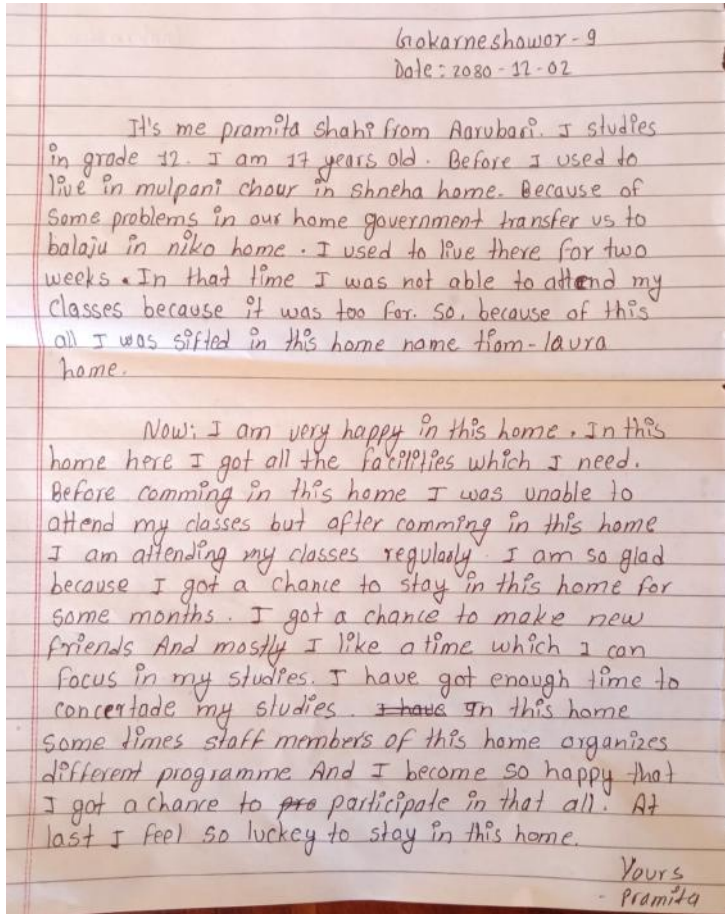 Gokarneshowor - 9
Date : 2080 - 12 - 02
It's me pramita shahi from Aarubari. I studies
in grade 12. I am 17 years old. Before I used to
live in mulpani chour in shneha home. Because of
some problems in our home government transfer us to
balaju in niko home. I used to live there for two
weeks. In that time I was not able to attend my
classes because it was too far. So, because of this
all I was sifted in this home name tiam-laura
home.
Now; I am very happy in this home. In this
home here I got all the facilities which I need.
Before comming in this home I was unable to
attend my classes but after comming in this home
I am attending my classes regulaoly. I am so glad
because I got a chance to stay in this home for
some months. I got a chance to make new
friends And mostly I like a time which I can
focus in my studies. I have got enough time to
concertade my studies. I have In this home
some times staff members of this home organizes
different programme And I become so happy that
I got a chance to pro participate in that all. At
last I feel so luckey to stay in this home.
Yours
- Pramita